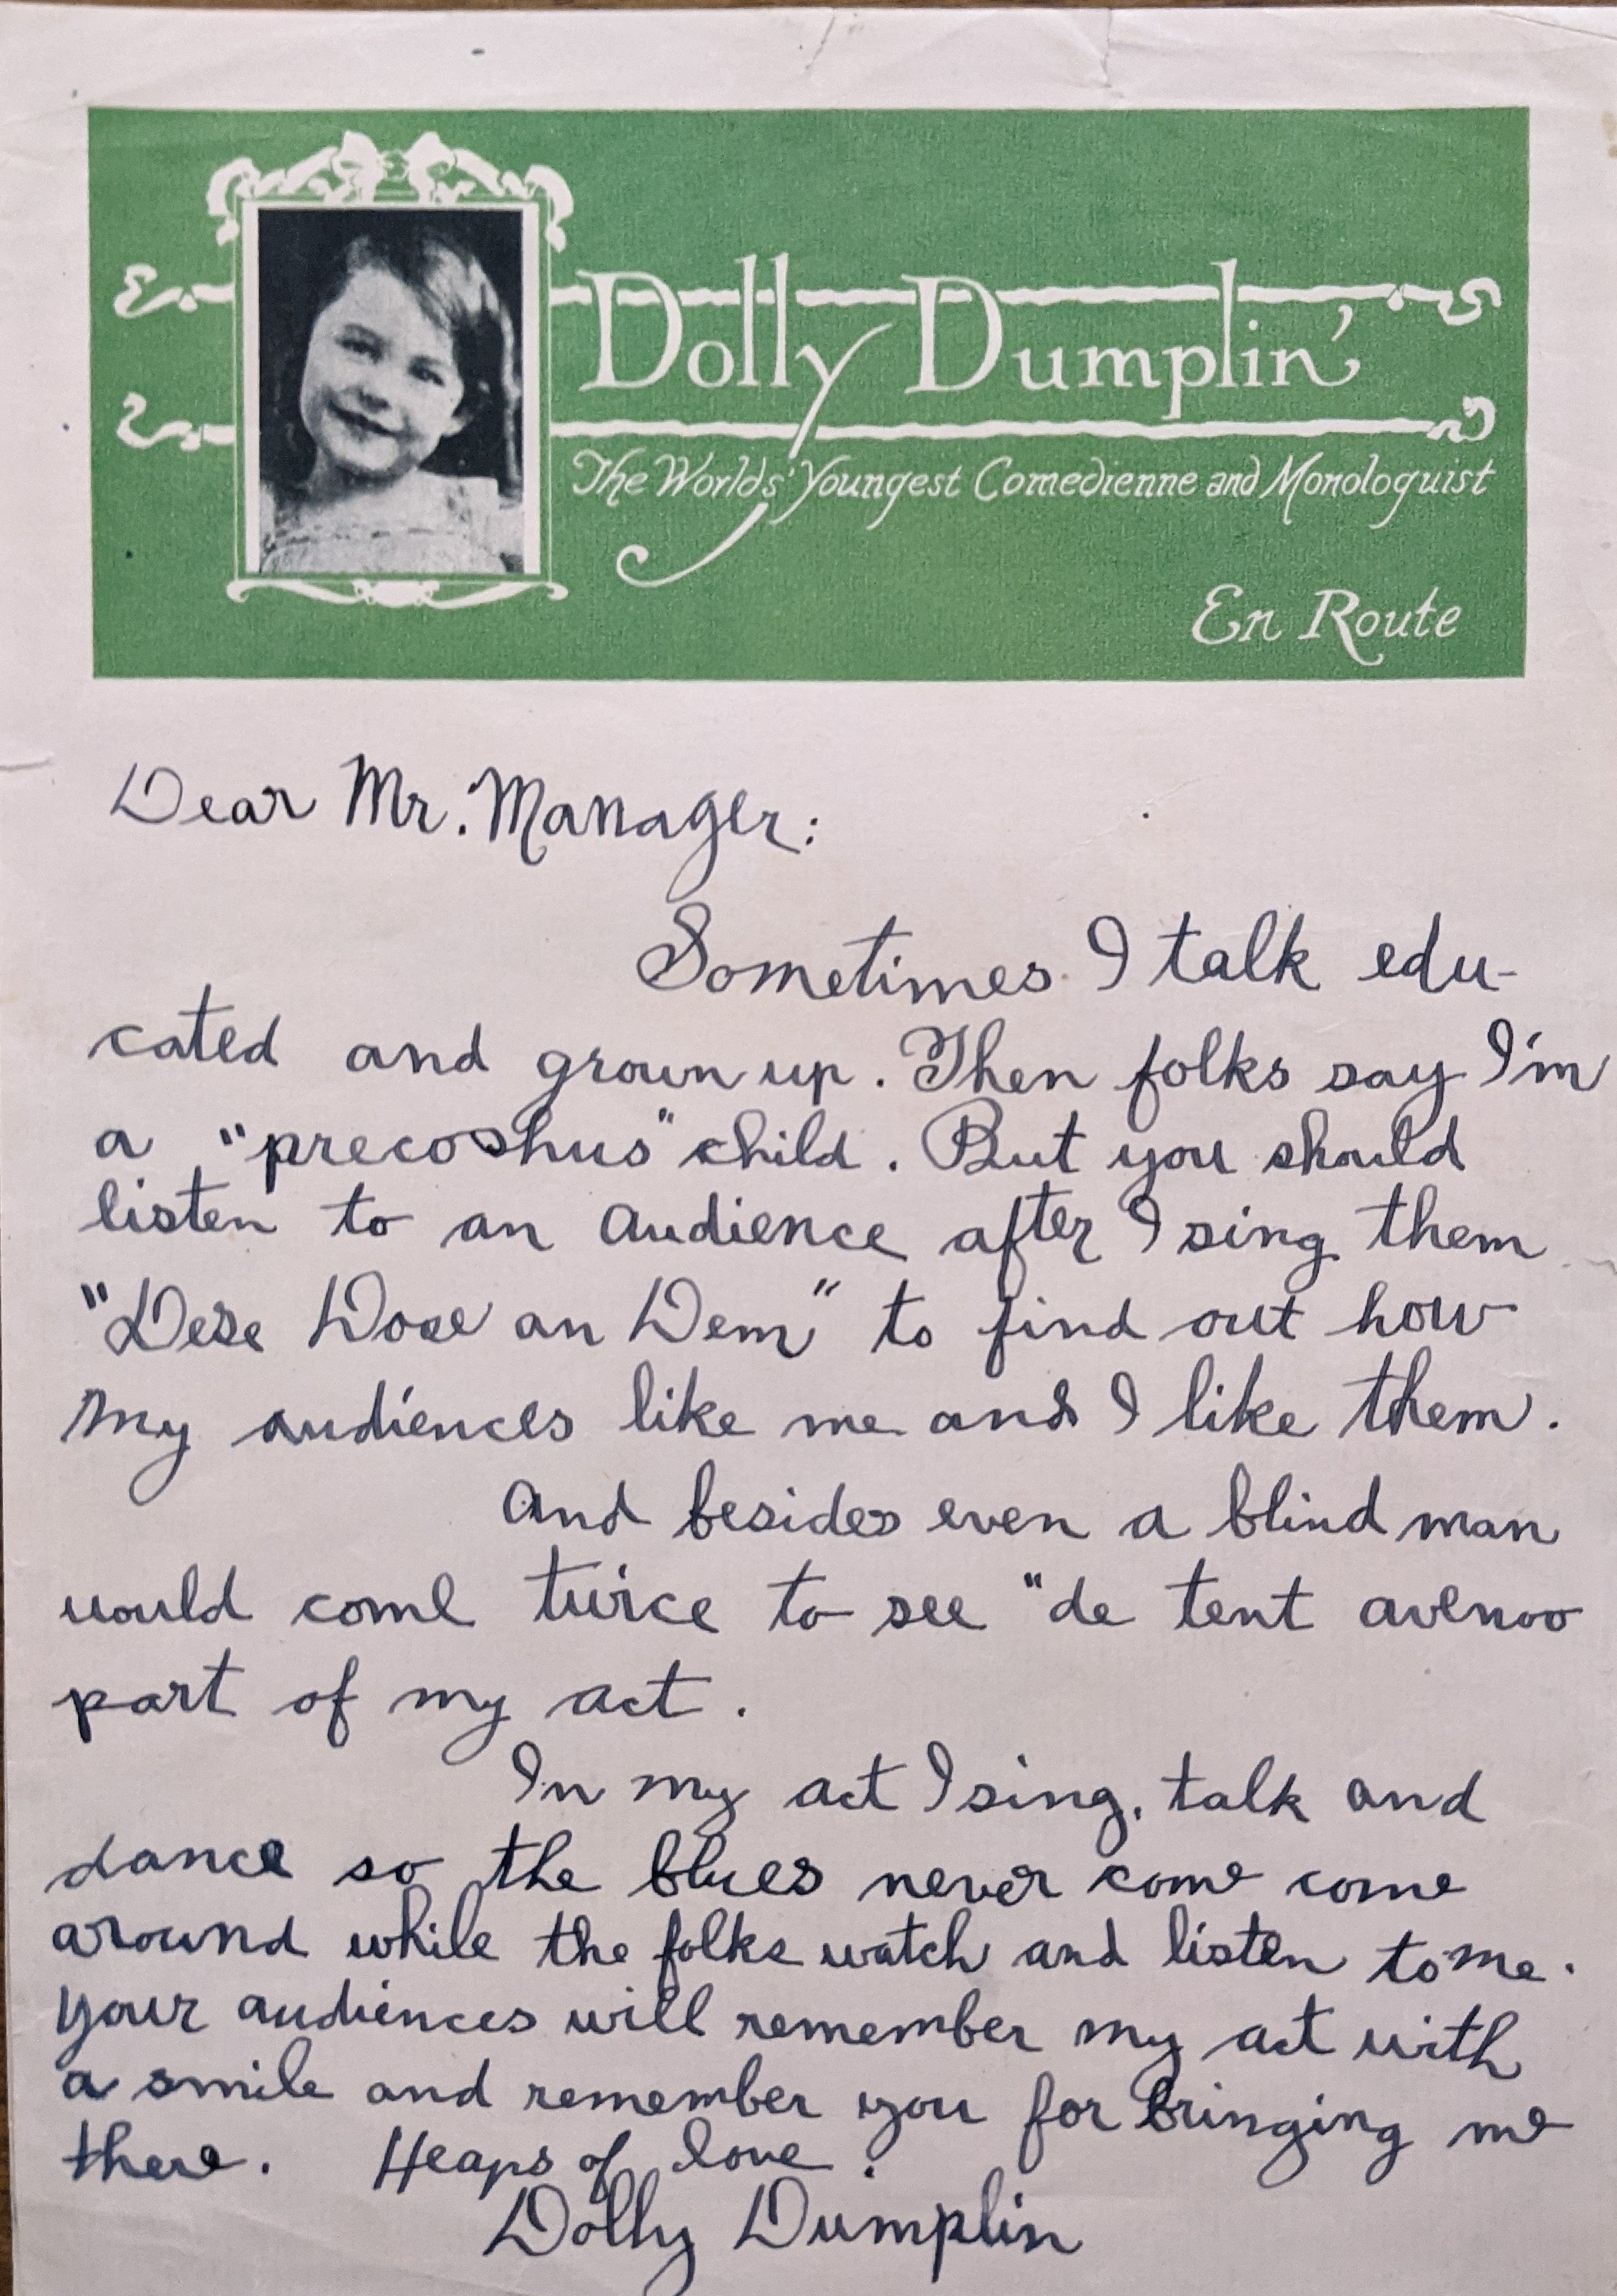 Dolly Dumplin'
The Worlds' Youngest Comedienne and Monologuist
En Route
Dear Mr. Manager:
Sometimes I talk edu-
cated and grown up. Then folks say I'm
a "precoshus" child. But you should
listen to an audience after I sing them
"Dese Dose an Dem" to find out how
my audiences like me and I like them.
And besides even a blind man
would come twice to see "de tent avenoo
part of my act.
In my act I sing, talk and
dance so the blues never come come
around while the folks watch and listen to me.
Your audiences will remember my act with
a smile and remember you for bringing me
there. Heaps of love.
Dolly Dumplin